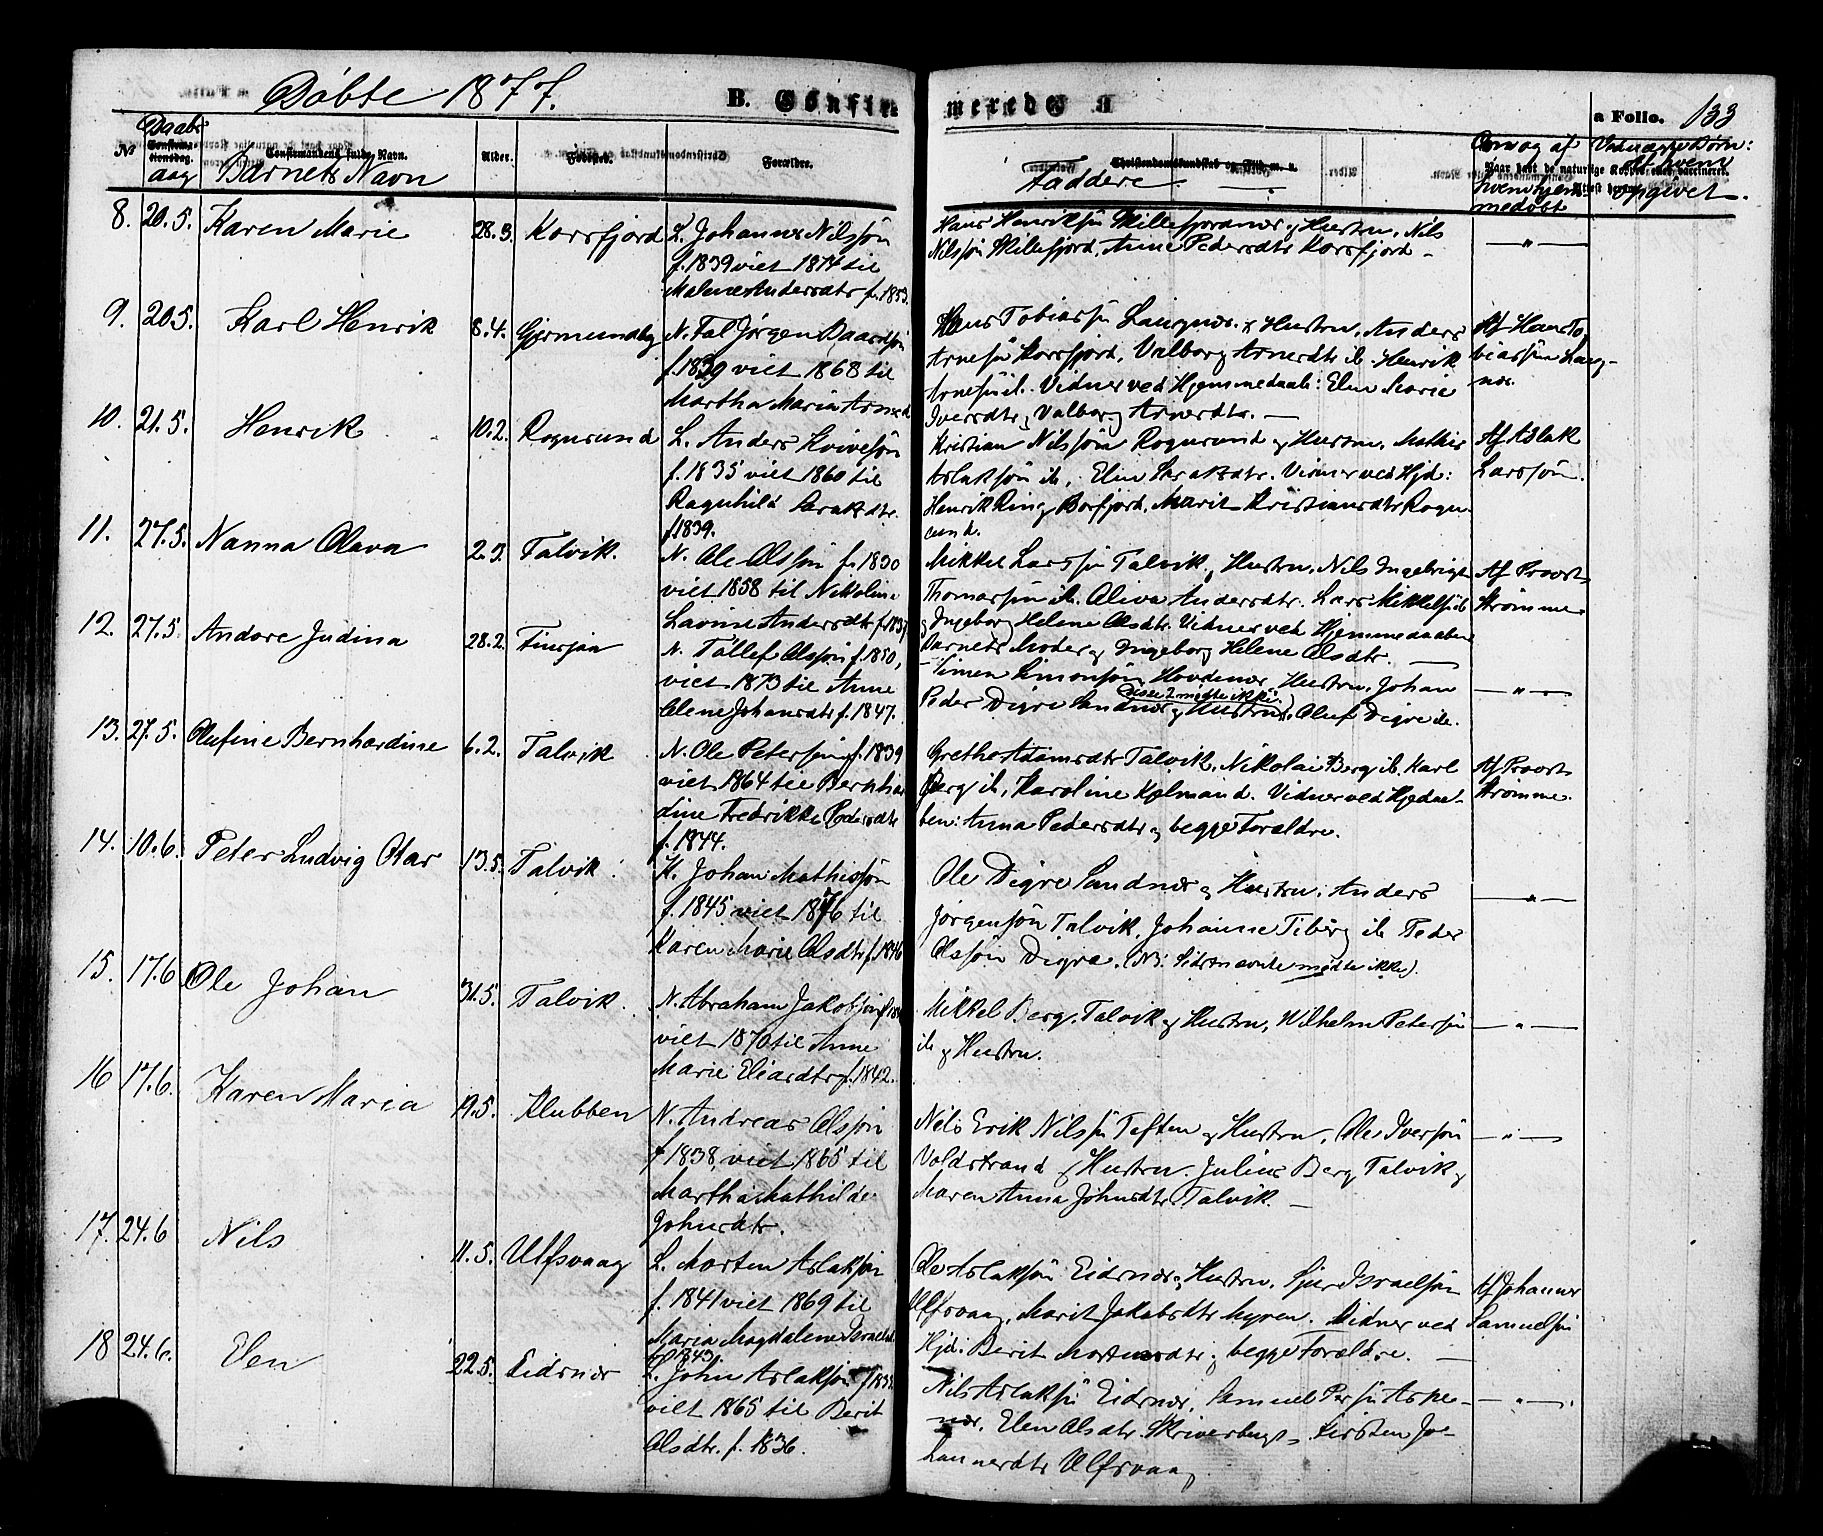 Döbte 1877.
B. Confirmerede
a Folio. 133
No
Daabs
Confirmationsdag.
aag
Confirmandens fulde Navn.
Barnets Navn
Alder.
Fødested.
Forældre.
Christendomskundskab og Flid m. v.
Faddere
Om og af
hvem hjem
medöbt
Uidenægte Børn:
af hvem
opgivet.
8. 20.5. Karen Marie 28.3. Korsfjord
L. Johannes Nilssön
f. 1839 viet 1874 til
Malene Andersdtr f. 1853.
Hans Henriksön Skillefjordnæs og Hustru, Nils
Nilssön Skillefjord, Anne Pedersdtr Korsfjord.
— " —
9. 20.5. Karl Henrik 8.4. Gjermundby
N. Fal Jörgen Baardsön
f. 1839 viet 1868 til
Martha Maria Arnesd
Hans Tobiassön Langnæs og Hustru, Anders
Arnesön Korsfjord, Valborg Arnesdtr ib. Henrik
Arnesön ib. Vidner ved Hjemmedaab: Elen Marie
Iversdtr og Valborg Arnesdtr. —
Af Hans To
biassön Lang-
næs.
10. 21.5. Henrik 10.2. Rognsund
L. Anders Kvivesön
f. 1835 viet 1860 til
Ragnhild Saraksdtr.
f. 1839.
Kristian Nilssön Rognsund og Hustru, Mathis
Aslaksön ib, Elen Saraksdtr. Vidner ved Hjd:
Henrik Ring Borfjord, Marit Kristiansdtr Rogn
sund.
Af Aslak
Larssön.
11. 27.5. Nanna Olava 2.3. Talvik.
N. Ole Olssön f. 1830
viet 1858 til Nikoline
Lavine Andersdtr f. 1837
Mikkel Larssön Talvik og Hustru, Nils Ingebrigt
Thomassön ib. Oliva Andersdtr. Lars Mikkelsön ib
og Ingeborg Helene Olsdtr. Vidner ved Hjemmedaaben
Barnets Moder og Ingeborg Helene Olsdtr. —
Af Provst
Strömme
12. 27.5 Andore Judina 28.2. Finsjaa
N. Tollef Olssön f. 1850,
viet 1873 til Anne
Olene Johansdtr f. 1847.
Simen Simonsön Hovdenæs, Hustru, Johan
Peder Digre Sandnæs og Hustru (disse 2 mødte ikke), Oluf Digre ib.
— " —
13. 27.5. Olufine Bernhardine 6.2. Talvik
N. Ole Petersön f. 1839
viet 1864 til Bernhar
dine Fredrikke Pedersdtr
f. 1844.
Grethe Adamsdtr Talvik, Nikolai Berg ib, Karl
Berg ib, Karoline Kjelmand. Vidner ved Hjedaa-
ben: Anna Pedersdtr og begge Forældre.
Af Provst
Strömme.
14. 10.6. Peter Ludvig Olar 13.5. Talvik.
K. Johan Mathissön
f. 1845 viet 1876 til
Karen Marie Olsdtr f. 1846
Ole Digre Sandnæs og Hustru, Anders
Jörgensön Talvik, Johanne Tiberg ib Peder
Olssön Digre. (NB: Sidstnævnte mødte ikke).
— " —
15. 17.6 Ole Johan 31.5. Talvik.
N. Abraham Jakobsön
viet 1870 til Anne
Marie Eliasdtr f. 1842.
Mikkel Berg, Talvik og Hustru, Wilhelm Petersön
ib og Hustru.
— " —
16 17.6. Karen Maria 19.5. Klubben
N. Andreas Olssön
f 1838, viet 1865 til
Martha Mathilde
Johnsdtr.
Nils Erik Nilssön Toften og Hustru, Ole Iversön
Voldstrand og Hustru, Julius Berg Talvik og
Maren Anna Johnsdtr Talvik. —
— " —
17. 24.6 Nils 11.5. Ulfsvaag
L. Morten Aslaksön
f. 1841 viet 1869 til
Maria Magdalene Israelsd
f. 1843.
Ole Aslaksön Eidsnæs og Hustru, Sjur Israelsön
Ulfsvaag, Marit Jakobsdtr Myren. Vidner ved
Hjd: Berit Mortensdtr og begge Forældre. —
Af Johannes
Samuelsön
18 24.6. Elen 22.5. Eidsnæs
L. John Aslaksön f 1838
viet 1865 til Berit
Olsdtr. f. 1836.
Nils Aslaksön Eidsnæs, Samuel Persön Aspe-
næs. Elen Olsdtr Skriverbugt, Kirsten Jo-
hannesdtr Ulfsvaag
— " —